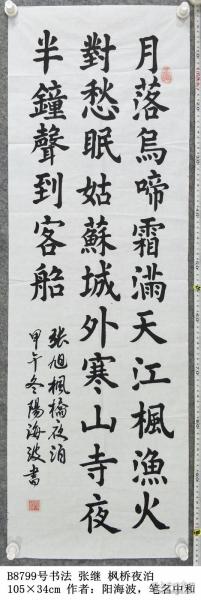 月落烏啼霜滿天江楓漁火
對愁眠姑蘇城外寒山寺夜
半鐘聲到客船
张旭楓橋夜泊
甲午冬陽海波書
B8799号书法 张继 枫桥夜泊
105×34cm 作者：阳海波，笔名中和